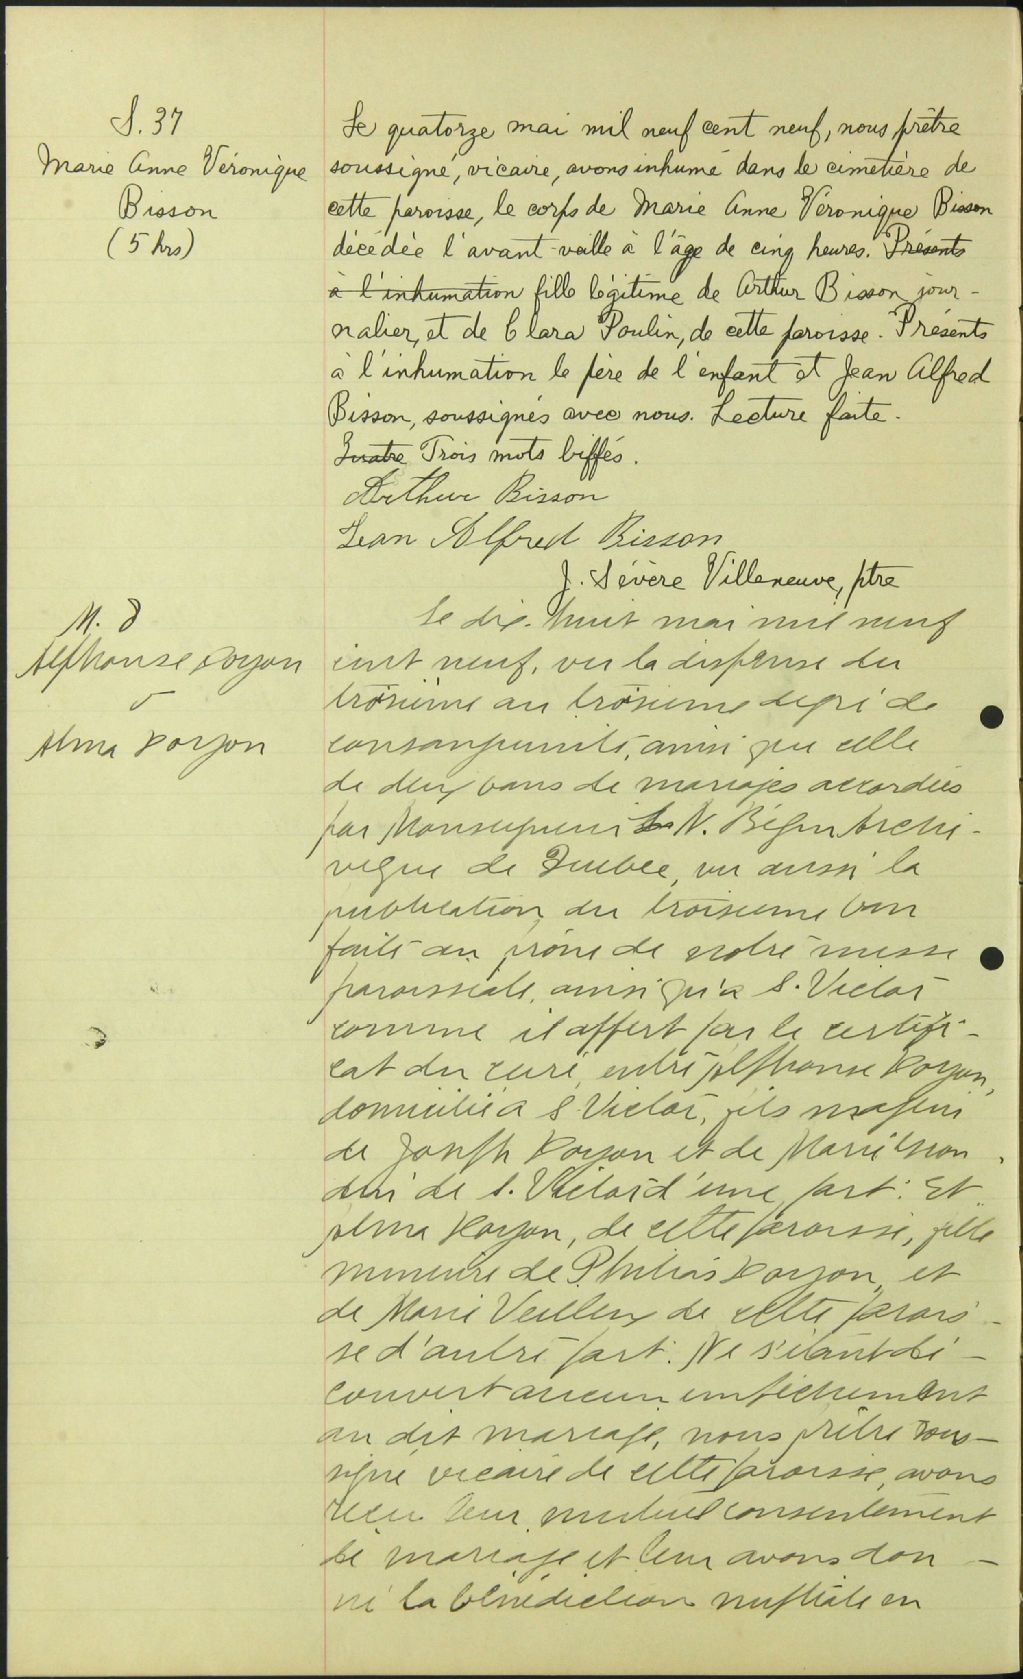 S. 37
Marie Anne Véronique
Bisson
(5 hrs)
Le quatorze mai mil neuf cent neuf, nous prêtre
soussigné, vicaire, avons inhumé dans le cimetière de
cette paroisse, le corps de Marie Anne Véronique Bisson
décédée l'avant-veille à l'âge de cinq heures. Présents
à l'inhumation fille légitime de Arthur Bisson, jour-
nalier, et de Clara Poulin, de cette paroisse. Présents
à l'inhumation le père de l'enfant et Jean Alfred
Bisson, soussignés avec nous. Lecture faite.
Quatre Trois mots biffés.
Arthur Bisson
Jean Alfred Bisson
J. Sévère Villeneuve, ptre
M. 8
Alphonse Doyon
&
Alma Doyon
Le dix-huit mai mil neuf
cent neuf, vu la dispense du
troisième au troisième degré de
consanguinité, ainsi que celle
de deux bans de mariages accordées
par Monseigneur L. N. Bégin Arche-
vêque de Québec, vu aussi la
publication du troisième ban
faite au prône de notre messe
paroissiale, ainsi qu'à S. Victor
comme il appert par le certifi-
cat du curé, entre Alphonse Doyon,
domicilié à S. Victor, fils majeur
de Joseph Doyon et de Marie
de S. Victor d'une part: Et
Alma Doyon, de cette paroisse, fille
mineure de Philias Doyon, et
de Marie Veilleux de cette parois-
se d'autre part: Ne s'étant dé-
couvert aucun empêchement
au dit mariage, nous prêtre sous-
signé vicaire de cette paroisse, avons
reçu leur mutuel consentement
de mariage et leur avons don-
né la bénédiction nuptiale en